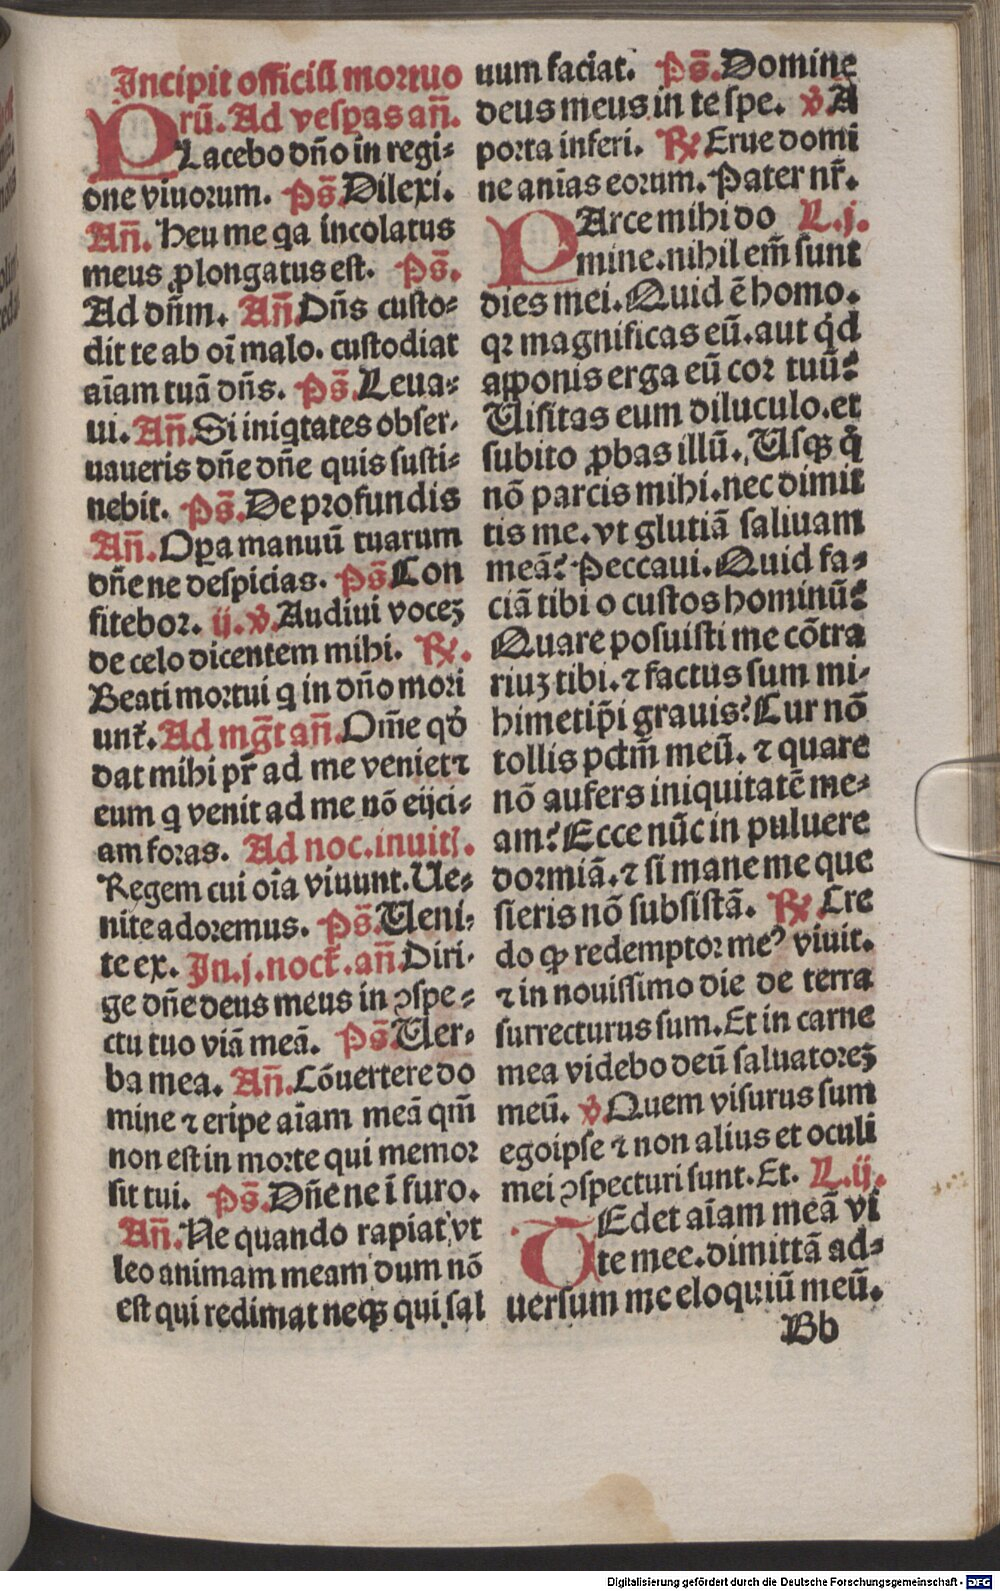 Incipit officiū mortuo
rū. Ad vesꝑas añ.
PLacebo dn̄o in regi⸗
one viuorum. Ps̄. Dilexi.
Añ. Heu me qa incolatus
meus ꝓlongatus est. Ps̄.
Ad dn̄m. Añ. Dn̄s custo⸗
dit te ab oī malo. custodiat
aīam tuā dn̄s. Ps̄. Leua⸗
ui. Añ. Si iniqtates obser⸗
uaueris dn̄e dn̄e quis susti⸗
nebit. Ps̄. De profundis
Añ. Oꝑa manuū tuarum
dn̄e ne despicias. Ps̄. Con
fitebor. ij. v̄. Audiui vocez
de celo dicentem mihi. ℞.
Beati mortui q in dn̄o mori
unt̄. Ad mḡt añ. Om̄e qd̄
dat mihi pr̄ ad me veniet ⁊
eum q venit ad me nō eijci⸗
am foras. Ad noc. inuitꝭ.
Regem cui oīa viuunt. Ue⸗
nite adoremus. Ps̄. Ueni⸗
te ex. In. j. noct̄. añ. Diri⸗
ge dn̄e deus meus in ꝯspe⸗
ctu tuo viā meā. Ps̄. Uer⸗
ba mea. Añ. Cōuertere do
mine ⁊ eripe aīam meā qm̄
non est in morte qui memor
sit tui. Ps̄. Dn̄e ne ī furo.
Añ. Ne quando rapiat vt
leo animam meam dum nō
est qui redimat neqꝫ qui sal
uum faciat. Ps̄. Domine
deus meus in te spe. v̄. A
porta inferi. ℞. Erue domi
ne anīas eorum. Pater nr̄.
PArce mihi do L. j.
mine. nihil em̄ sunt
dies mei. Quid ē homo.
qꝛ magnificas eū. aut qd
apponis erga eū cor tuū?
Uisitas eum diluculo. et
subito ꝓbas illū. Usqꝫ q̄
nō parcis mihi. nec dimit
tis me. vt glutiā saliuam
meā? Peccaui. Quid fa⸗
ciā tibi o custos hominū?
Quare posuisti me cōtra
riuz tibi. ⁊ factus sum mi⸗
himetip̄i grauis? Cur nō
tollis pctm̄ meū. ⁊ quare
nō aufers iniquitatē me⸗
am? Ecce nūc in puluere
dormiā. ⁊ si mane me que
sieris nō subsistā. ℞. Cre
do ꝙ redemptor meꝰ viuit.
⁊ in nouissimo die de terra
surrecturus sum. Et in carne
mea videbo deū saluatorez
meū. v̄. Quem visurus sum
ego ipse ⁊ non alius et oculi
mei ꝯspecturi sunt. Et. L. ij.
TEdet aīam meā vi
te mee. dimittā ad⸗
uersum me eloquiū meū.
Bb
Digitalisierung gefördert durch die Deutsche Forschungsgemeinschaft - DFG